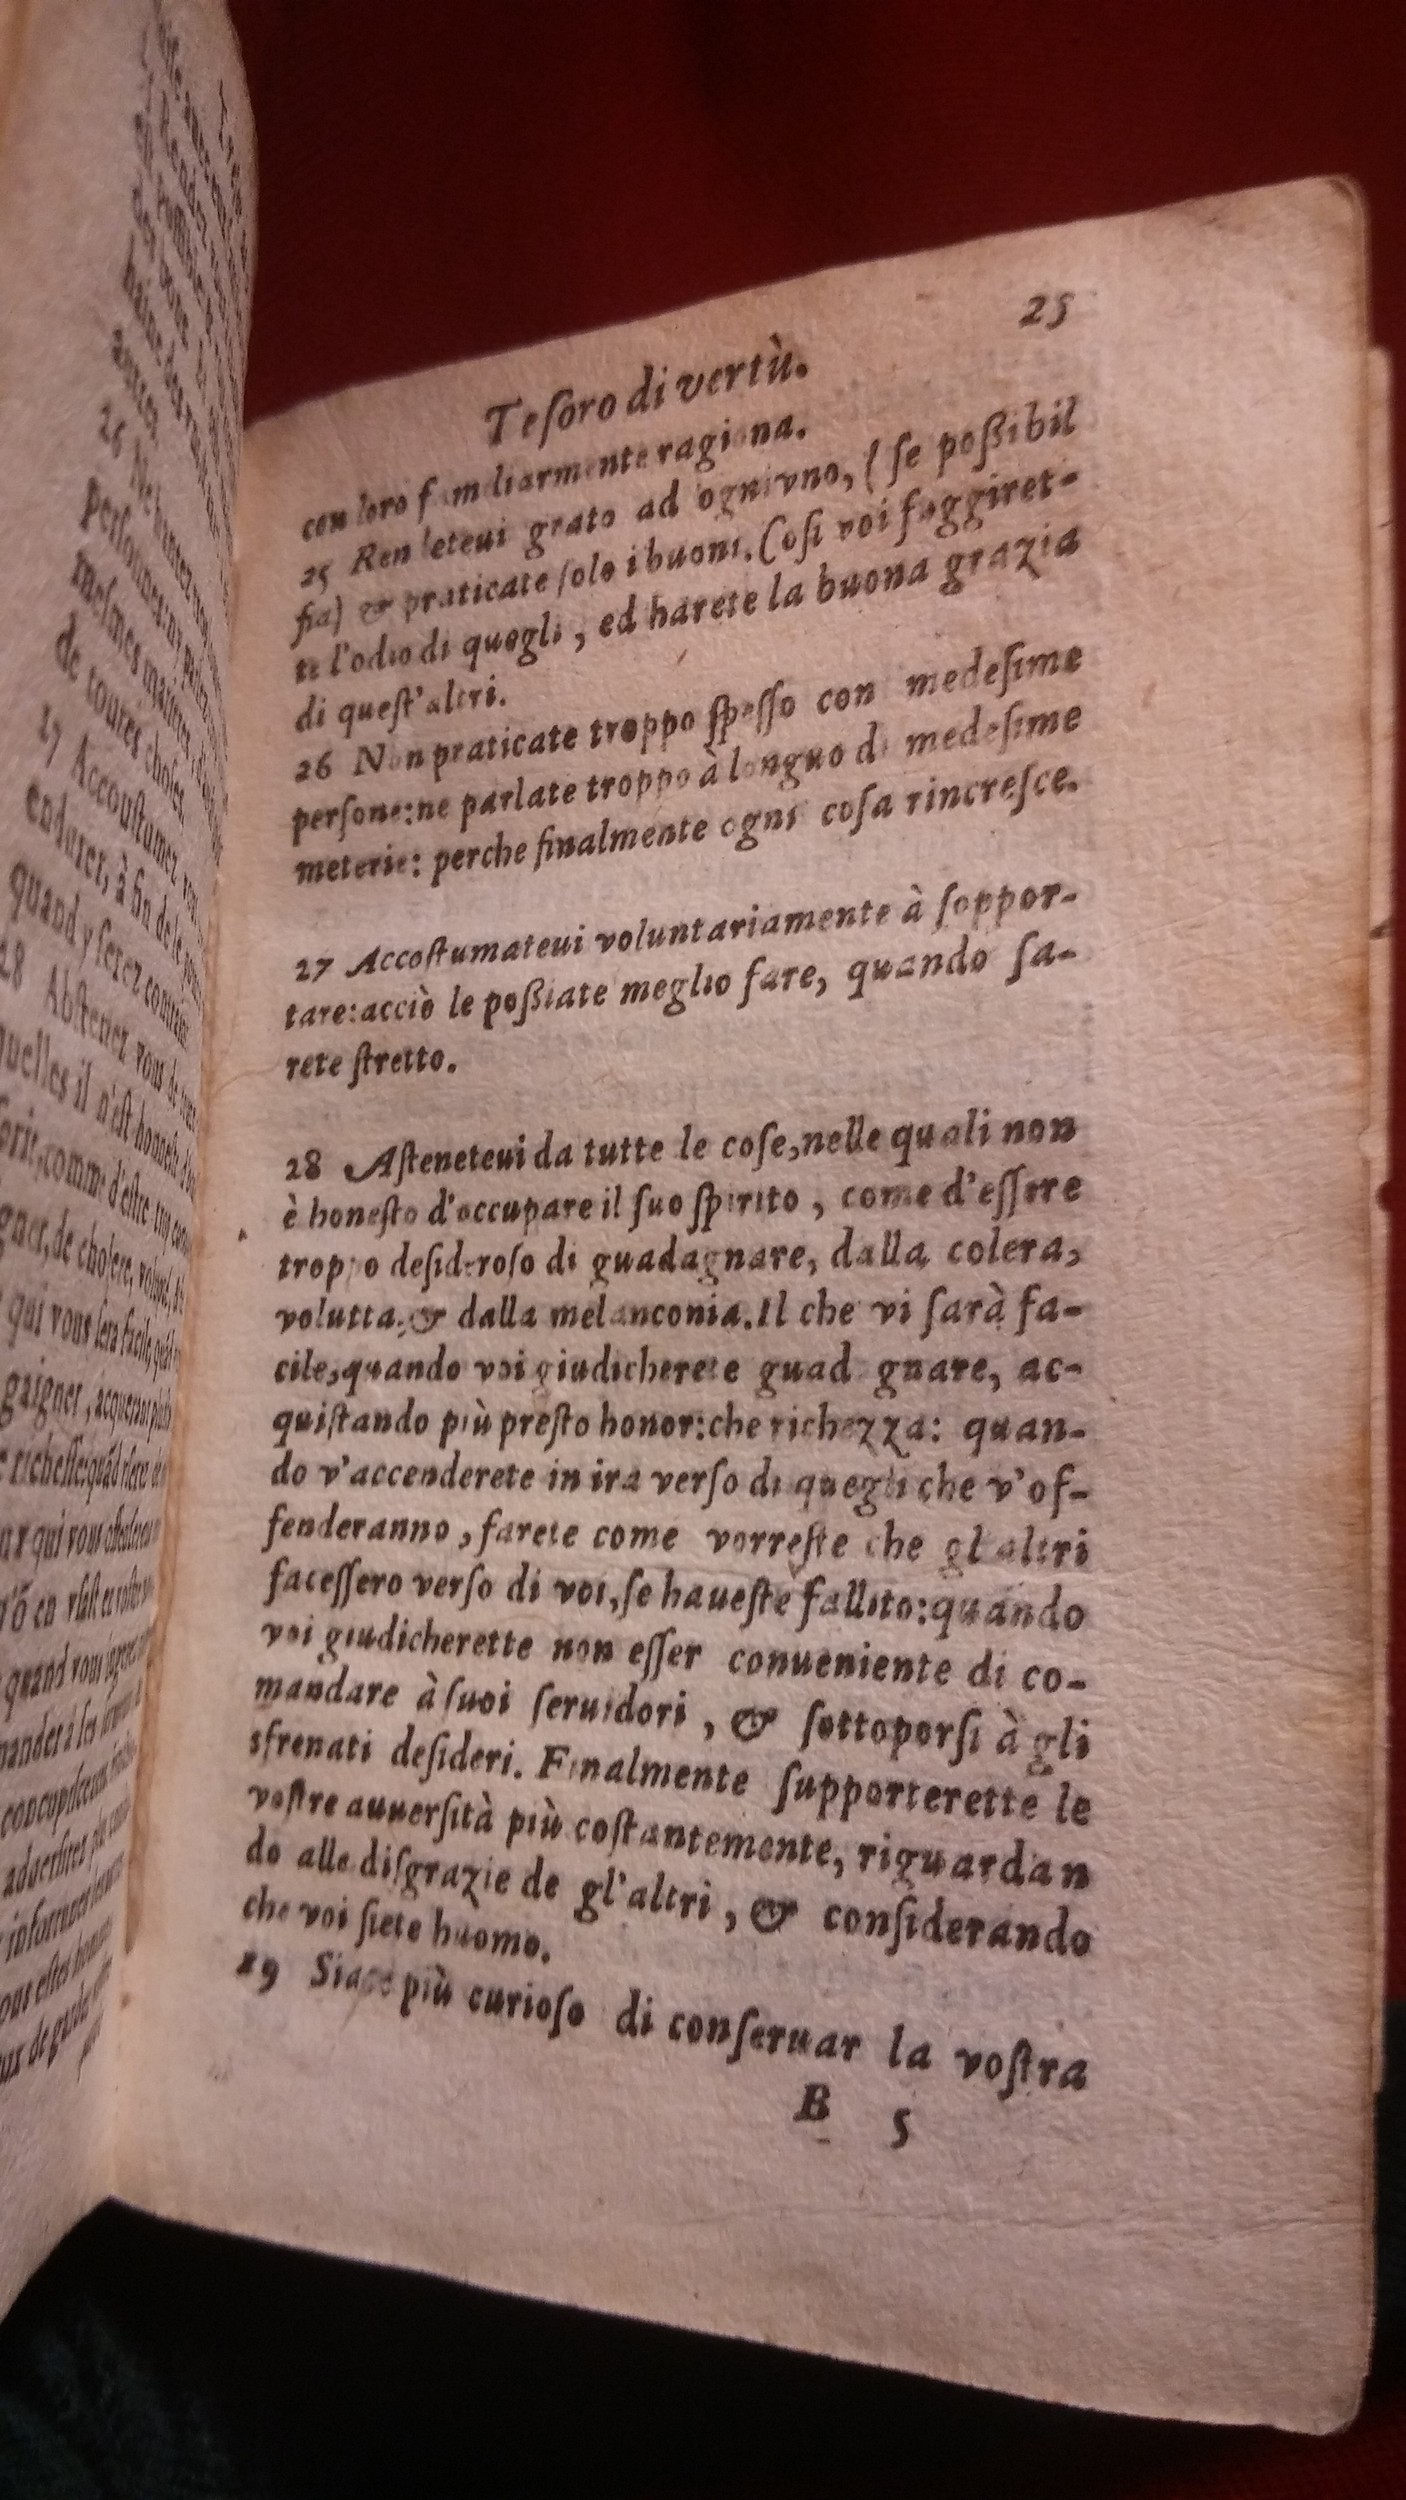 25
Teſoro di vertù.
con loro familiarmente ragiona.
25 Rendeteui grato ad ogni vno, (ſe poßibil
fia) & praticate ſolo i buoni. Coſi voi foggiret-
te l'odio di quegli, ed harete la buona grazia
di queſt'altri.
26 Non praticate troppo ſpeſſo con medeſime
perſone: ne parlate troppo à longuo di medeſime
meterie: perche finalmente ogni coſa rincreſce.
27 Accoſtumateui voluntariamente à ſoppor-
tare: acciò le poßiate meglio fare, quando ſa-
rete ſtretto.
28 Aſteneteui da tutte le coſe, nelle quali non
è honeſto d'occupare il ſuo ſpirito, come d'eſſere
troppo deſideroſo di guadagnare, dalla colera,
volutta, & dalla melanconia. Il che vi ſarà fa-
cile, quando voi giudicherete guadagnare, ac-
quiſtando più preſto honor: che richezza: quan-
do v'accenderete in ira verſo di quegli che v'of-
fenderanno, farete come vorreſte che gl'altri
faceſſero verſo di voi, ſe haueſte fallito: quando
voi giudicherette non eſſer conueniente di co-
mandare à ſuoi ſeruidori, & ſottoporſi à gli
sfrenati deſideri. Finalmente ſupporterette le
voſtre auuerſità più coſtantemente, riguardan
do alle diſgrazie de gl'altri, & conſiderando
che voi ſiete huomo.
29 Siate più curioſo di conſeruar la voſtra
B 5
26
27 Accouſtumez
endurer, à fin de le
quand y ſerez
28 Abſtenez vous de
quelles il n'eſt honneſte
comme d'eſtre
de cholere,
qui vous ſera facile,
gaigner,
qui vous
quand vous